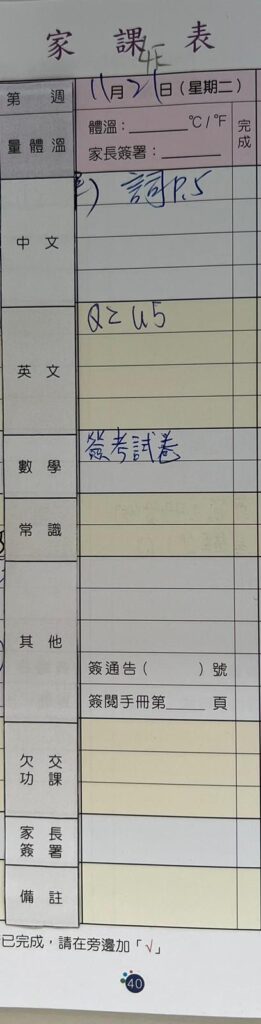 家課表
4E
第 週 11月21日(星期二)
量體溫 體溫：______℃/℉ 完成
家長簽署：______
中文 詞P.5
英文 Q2 U5
數學 簽考試卷
常識
其他
簽通告( )號
簽閱手冊第____頁
欠交功課
家長簽署
備註
已完成，請在旁邊加「√」
40